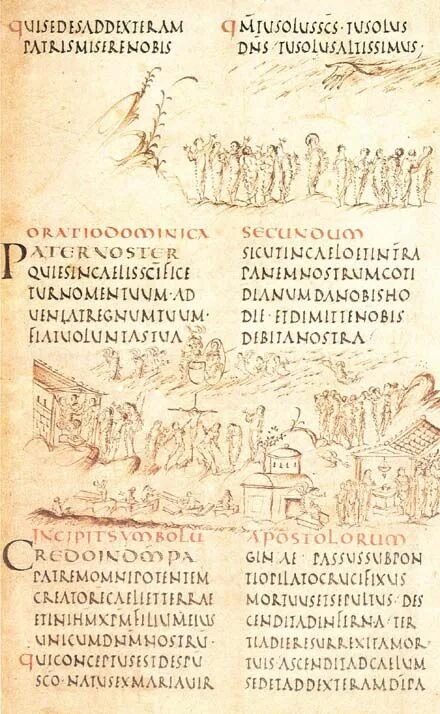 QUISEDESADDEXTERAM
PATRISMISERENOBIS
QM̄TUSOLUSSC̄S·TUSOLUS
DN̄S·TUSOLUSALTISSIMUS;
ORATIODOMINICA
PATERNOSTER
QUIESINCAELISSC̄IFICE
TURNOMENTUUM·AD
UENIATREGNUMTUUM·
FIATUOLUNTASTUA
SECUNDUM
SICUTINCAELOETINT̄RA
PANEMNOSTRUMCOTI
DIANUMDANOBISHO
DIE·ETDIMITTENOBIS
DEBITANOSTRA
INCIPITSYMBOLU
CREDOINDM̄PA
PATREMOMNIPOTENTEM
CREATORĒCAELIETTERRAE
ETINIHM̄XPM̄FILIUMEIUS
UNICUMDNM̄NOSTRU·
QUICONCEPTUSESTDESPU
SCO·NATUSEXMARIAUIR
APOSTOLORUM
GINAE·PASSUSSUBPON
TIOPILATOCRUCIFIXUS
MORTUUSETSEPULTUS·DES
CENDITADINFERNA·TER
TIADIERESURREXITAMOR
TUIS·ASCENDITADCAELUM
SEDETADDEXTERAMDĪPA